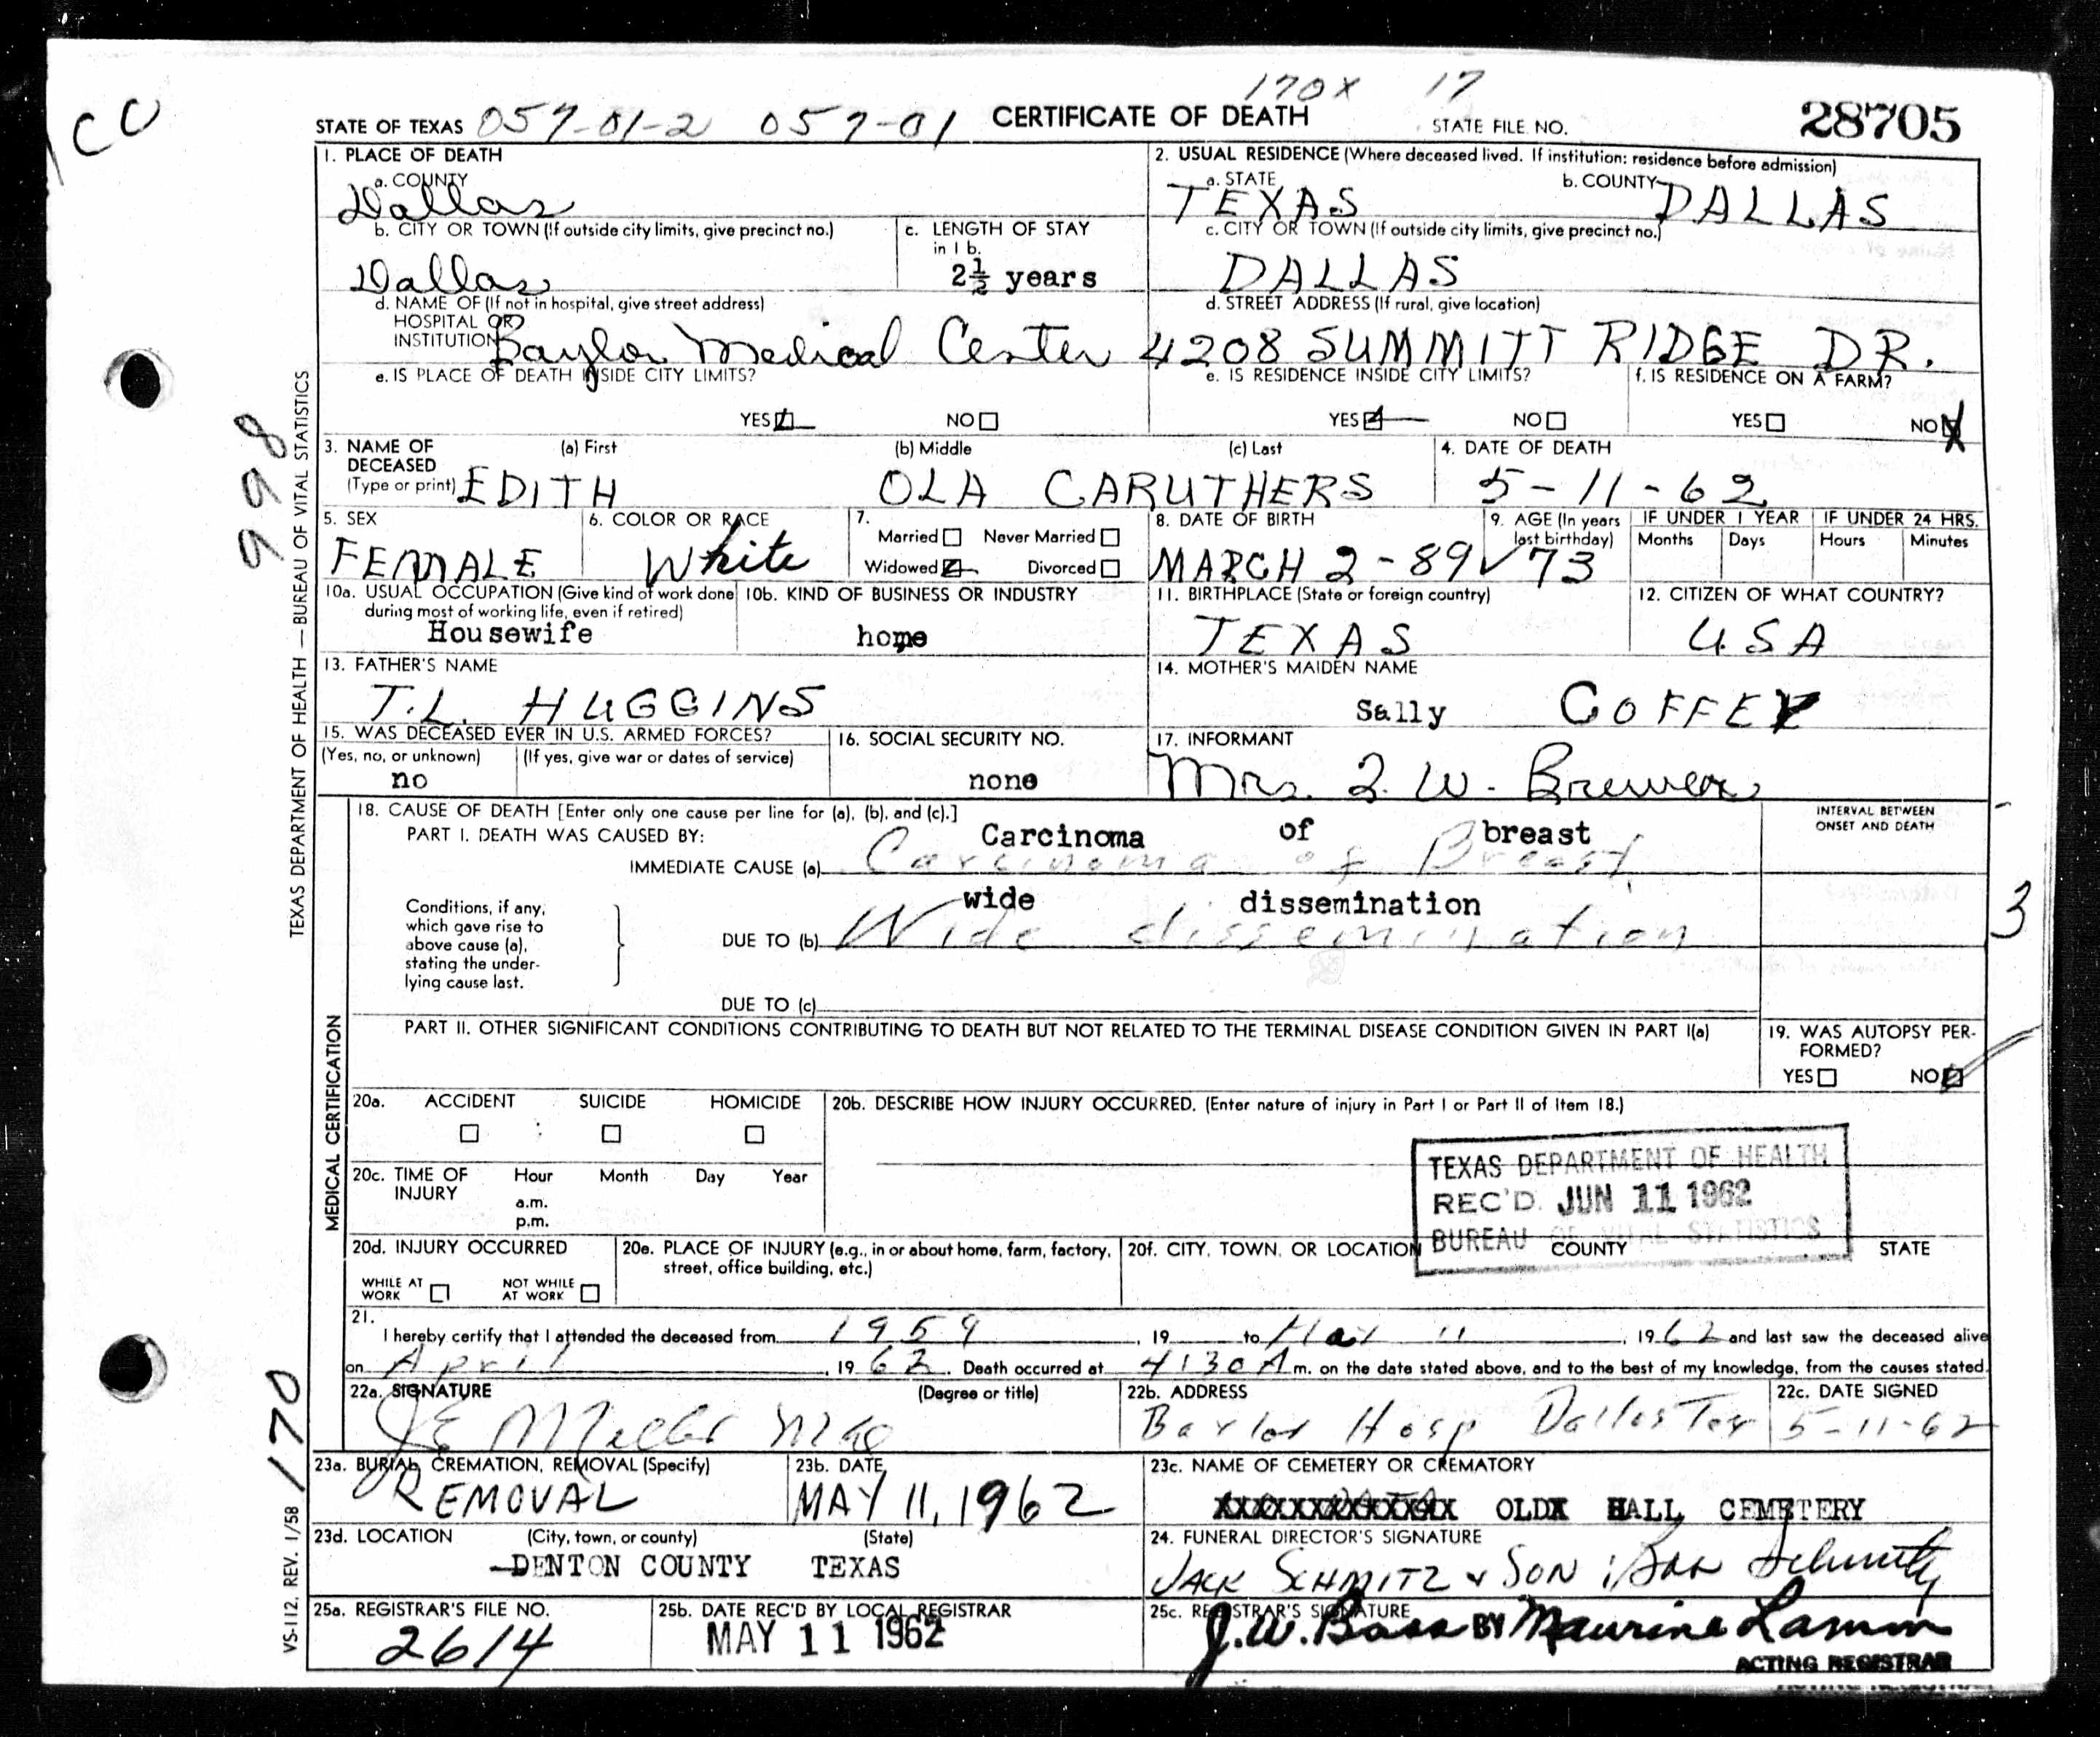 CC
170X 17
STATE OF TEXAS 057-01-2 057-01 CERTIFICATE OF DEATH STATE FILE NO. 28705
1. PLACE OF DEATH
a. COUNTY
Dallas
2. USUAL RESIDENCE (Where deceased lived. If institution: residence before admission)
a. STATE b. COUNTY
TEXAS DALLAS
b. CITY OR TOWN (If outside city limits, give precinct no.)
Dallas
c. LENGTH OF STAY
in 1 b.
2½ years
c. CITY OR TOWN (If outside city limits, give precinct no.)
DALLAS
d. NAME OF (If not in hospital, give street address)
HOSPITAL OR
INSTITUTION Baylor Medical Center
d. STREET ADDRESS (If rural, give location)
4208 SUMMITT RIDGE DR.
e. IS PLACE OF DEATH INSIDE CITY LIMITS?
YES NO
e. IS RESIDENCE INSIDE CITY LIMITS?
YES NO
f. IS RESIDENCE ON A FARM?
YES NO
3. NAME OF DECEASED (Type or print)
(a) First (b) Middle (c) Last
EDITH OLA CARUTHERS
4. DATE OF DEATH
5-11-62
5. SEX
FEMALE
6. COLOR OR RACE
White
7.
Married Never Married
Widowed Divorced
8. DATE OF BIRTH
MARCH 2-89
9. AGE (In years
last birthday)
73
IF UNDER 1 YEAR
Months Days
IF UNDER 24 HRS.
Hours Minutes
10a. USUAL OCCUPATION (Give kind of work done
during most of working life, even if retired)
Housewife
10b. KIND OF BUSINESS OR INDUSTRY
home
11. BIRTHPLACE (State or foreign country)
TEXAS
12. CITIZEN OF WHAT COUNTRY?
USA
13. FATHER'S NAME
T.L. HUGGINS
14. MOTHER'S MAIDEN NAME
Sally COFFEY
15. WAS DECEASED EVER IN U.S. ARMED FORCES?
(Yes, no, or unknown) (If yes, give war or dates of service)
no
16. SOCIAL SECURITY NO.
none
17. INFORMANT
Mrs. Q. W. Brewer
18. CAUSE OF DEATH [Enter only one cause per line for (a), (b), and (c).]
INTERVAL BETWEEN
ONSET AND DEATH
PART I. DEATH WAS CAUSED BY:
Carcinoma of breast
IMMEDIATE CAUSE (a) Carcinoma of Breast
wide dissemination
Conditions, if any,
which gave rise to
above cause (a),
stating the under-
lying cause last.
DUE TO (b) Wide dissemination
DUE TO (c)
3
PART II. OTHER SIGNIFICANT CONDITIONS CONTRIBUTING TO DEATH BUT NOT RELATED TO THE TERMINAL DISEASE CONDITION GIVEN IN PART I(a)
19. WAS AUTOPSY PER-
FORMED?
YES NO
20a. ACCIDENT SUICIDE HOMICIDE
20b. DESCRIBE HOW INJURY OCCURRED. (Enter nature of injury in Part I or Part II of Item 18.)
20c. TIME OF INJURY
Hour Month Day Year
a.m.
p.m.
TEXAS DEPARTMENT OF HEALTH
REC'D JUN 11 1962
BUREAU OF VITAL STATISTICS
20d. INJURY OCCURRED
WHILE AT WORK NOT WHILE AT WORK
20e. PLACE OF INJURY (e.g., in or about home, farm, factory,
street, office building, etc.)
20f. CITY, TOWN, OR LOCATION COUNTY STATE
21.
I hereby certify that I attended the deceased from 1959, 19 to May 11, 1962 and last saw the deceased alive
on April, 1962. Death occurred at 4:30 A m. on the date stated above, and to the best of my knowledge, from the causes stated.
22a. SIGNATURE (Degree or title)
JE Miller MD
22b. ADDRESS
Baylor Hosp Dallas Tex
22c. DATE SIGNED
5-11-62
23a. BURIAL, CREMATION, REMOVAL (Specify)
REMOVAL
23b. DATE
MAY 11, 1962
23c. NAME OF CEMETERY OR CREMATORY
XXXXXXXXXXXXX OLDX HALL CEMETERY
23d. LOCATION (City, town, or county) (State)
DENTON COUNTY TEXAS
24. FUNERAL DIRECTOR'S SIGNATURE
JACK SCHMITZ & SON Schmitz
25a. REGISTRAR'S FILE NO.
2614
25b. DATE REC'D BY LOCAL REGISTRAR
MAY 11 1962
25c. REGISTRAR'S SIGNATURE
J.W. Bass BY Maurine Lamm
ACTING REGISTRAR
998
TEXAS DEPARTMENT OF HEALTH — BUREAU OF VITAL STATISTICS
MEDICAL CERTIFICATION
170
VS-112, REV. 1/58